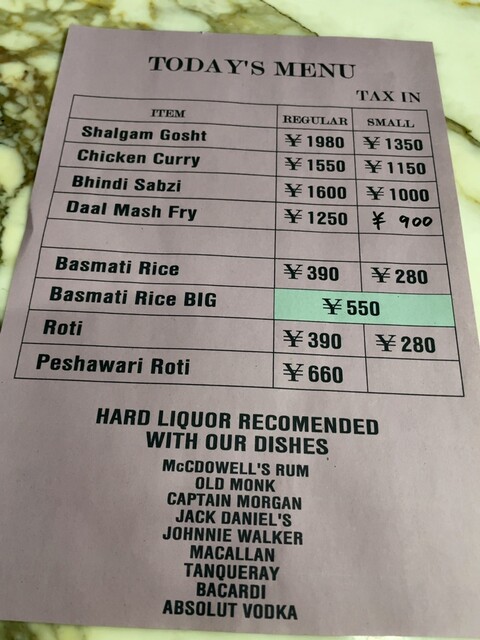 TODAY'S MENU
TAX IN
ITEM REGULAR SMALL
Shalgam Gosht ¥1980 ¥1350
Chicken Curry ¥1550 ¥1150
Bhindi Sabzi ¥1600 ¥1000
Daal Mash Fry ¥1250 ¥ 900
Basmati Rice ¥390 ¥280
Basmati Rice BIG ¥550
Roti ¥390 ¥280
Peshawari Roti ¥660
HARD LIQUOR RECOMENDED
WITH OUR DISHES
McCDOWELL'S RUM
OLD MONK
CAPTAIN MORGAN
JACK DANIEL'S
JOHNNIE WALKER
MACALLAN
TANQUERAY
BACARDI
ABSOLUT VODKA